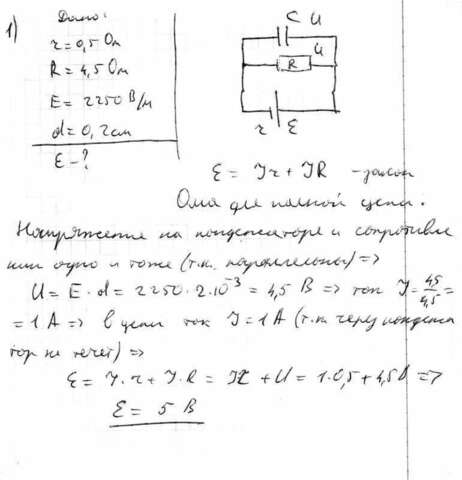 1)
Дано:
r = 0,5 Ом
R = 4,5 Ом
E = 2250 В/м
d = 0,2 см
Ɛ - ?
C U
U
R
r Ɛ
Ɛ = Ir + IR - закон
Ома для полной цепи.
Напряжение на конденсаторе и сопротивле
нии одно и тоже (т.к. параллельны) =>
U = E · d = 2250 · 2·10⁻³ = 4,5 В => ток I = 4,5/4,5 =
= 1 А => в цепи ток I = 1 А (т.к. через конденса
тор не течет) =>
Ɛ = I · r + I · R = Ir + U = 1·0,5 + 4,5 В =>
Ɛ = 5 В